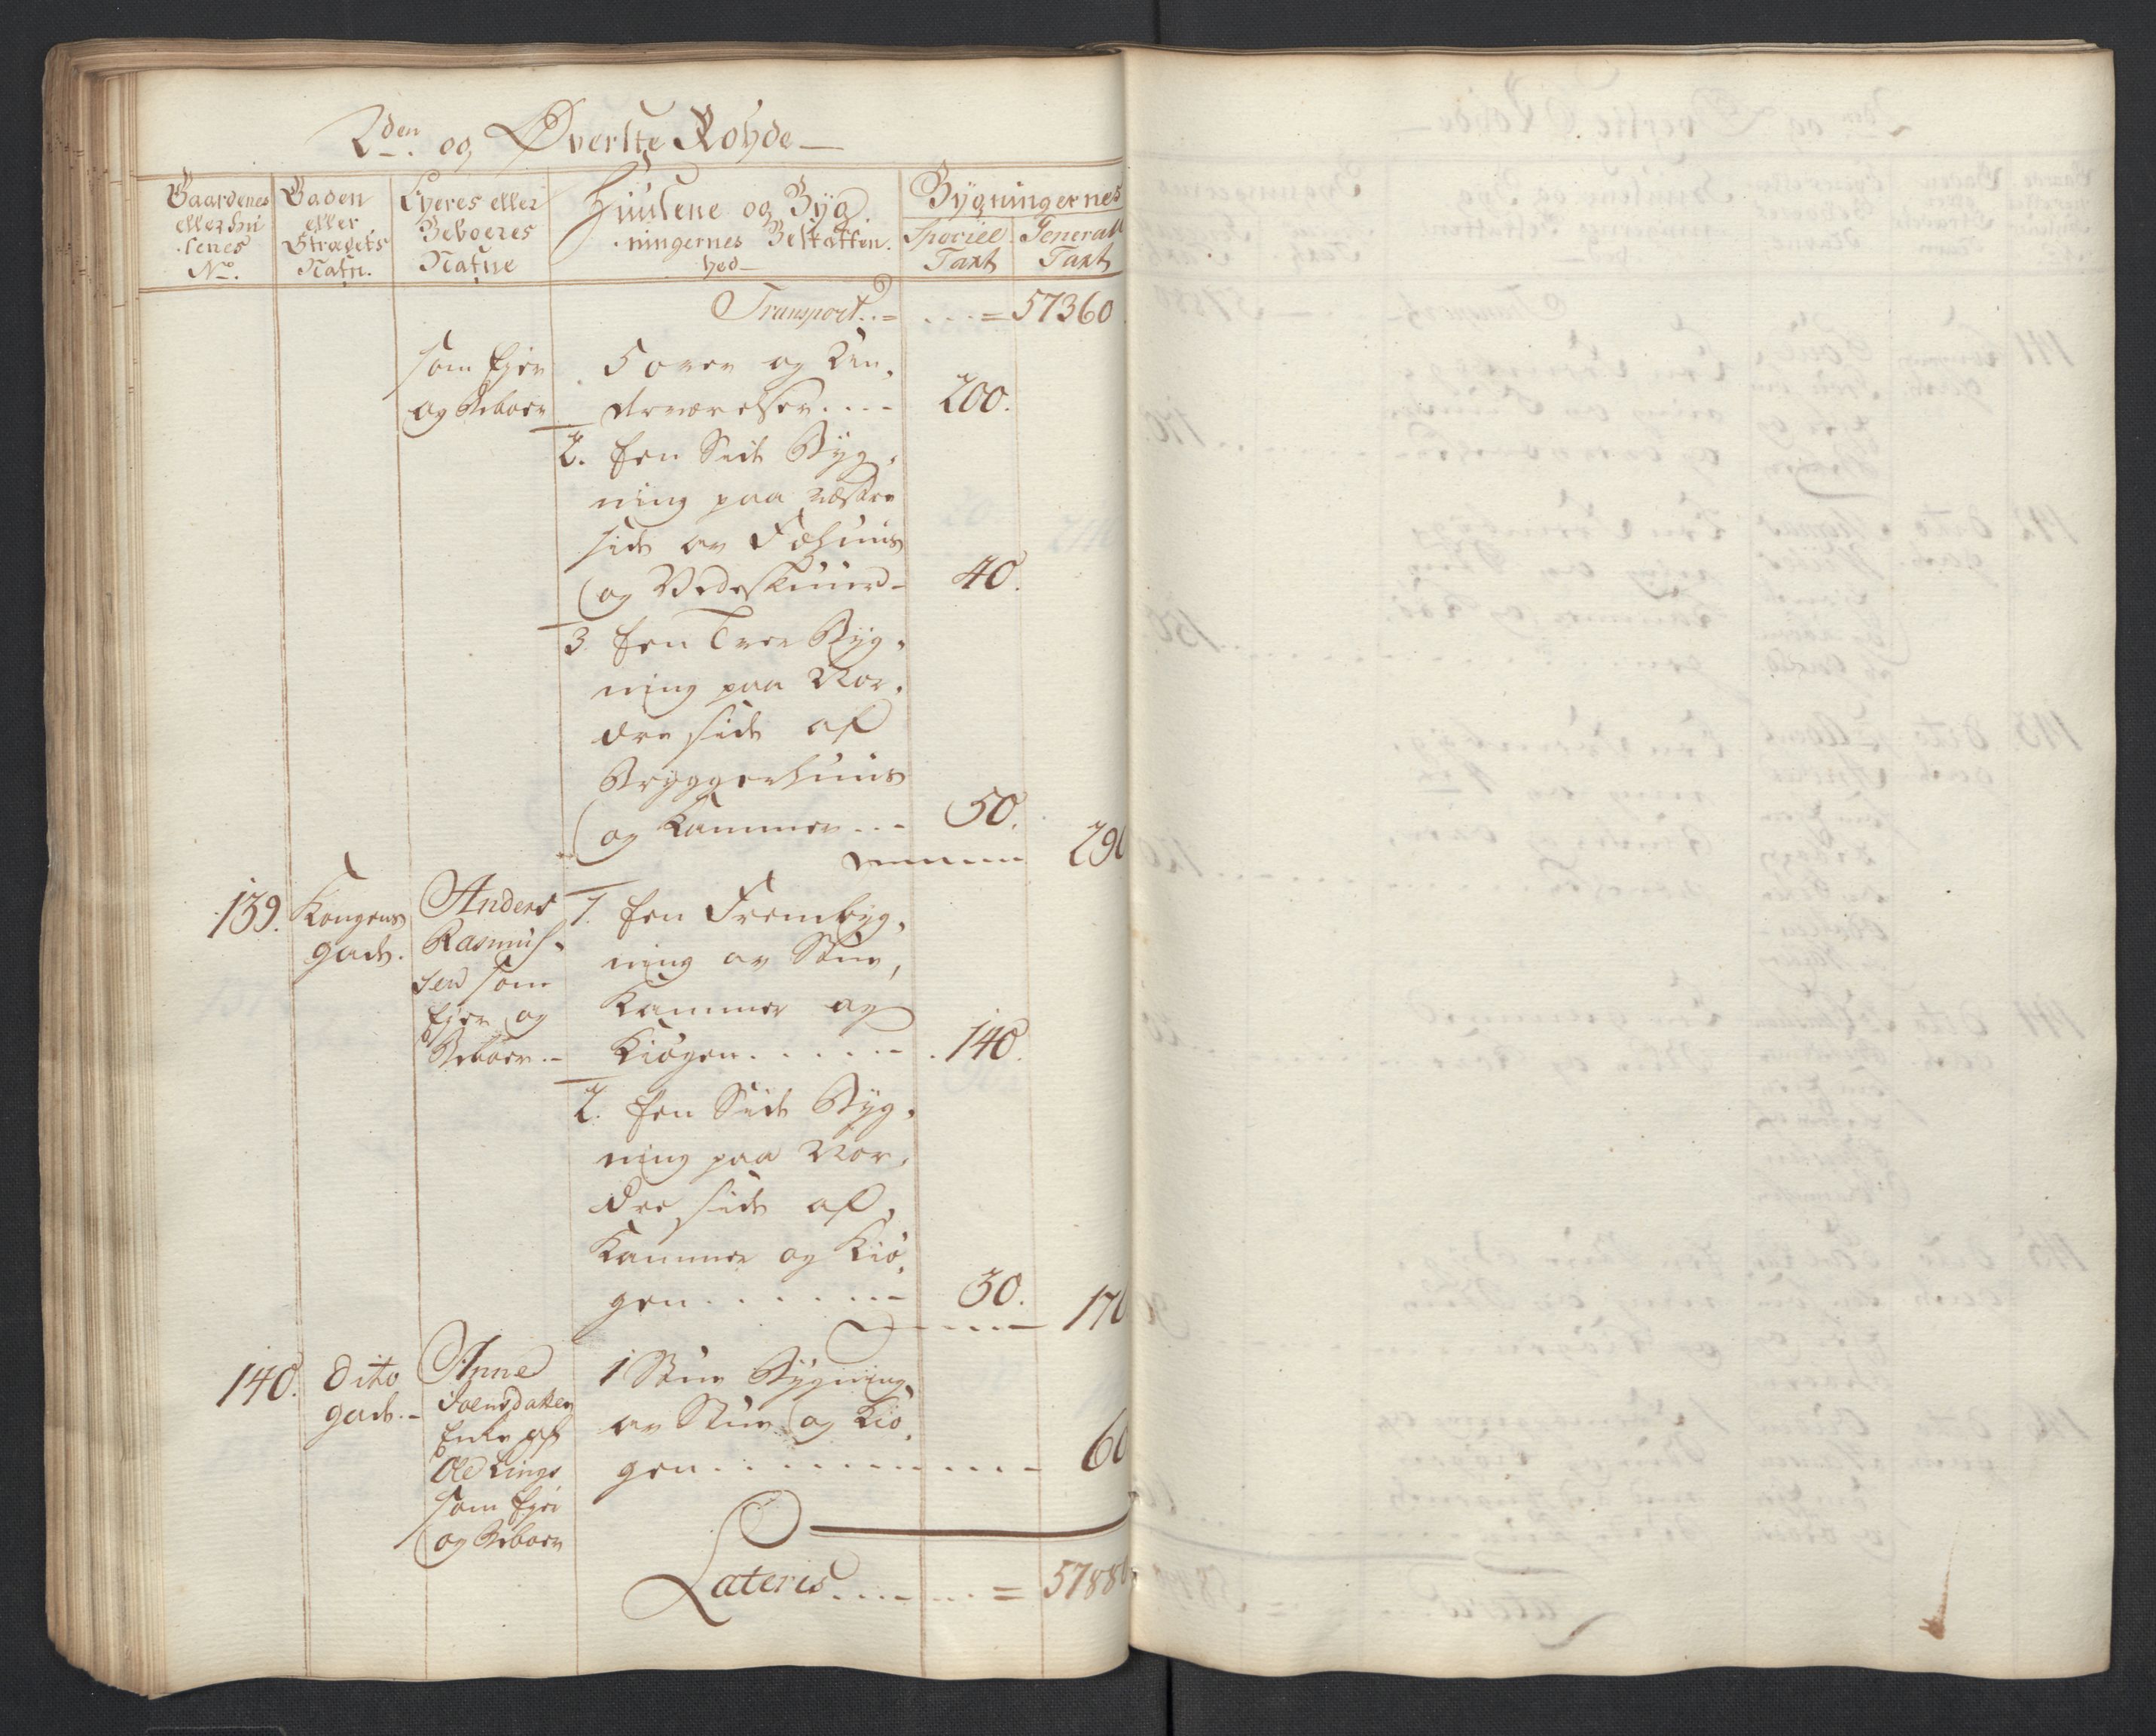 2den og Øverste Rohde
Gaardenes eller Huusenes No.
Gaden eller Strædets Nafn.
Eyeres eller Beboeres Nafne
Huusene og Bygningernes Beskaffenhed
Bygningernes
Speciel Taxt
Generall Taxt
Transport = 57360
som Ejer
og Beboer
5 over og Un,
derværelser 200.
2. Een Side Byg,
ning paa vestre
side av Fæhuus
og Vedeskuur 40.
3 Een Tver Byg,
ning paa Nor,
dre side af
Bryggerhuus
og Kammer 50. 290
139. Kongens
gade.
Anders
Rasmus-
sen som
Ejer og
Beboer
1. Een Frembyg,
ning av Stue,
Kammer og
Kiøgen 140.
2. Een Side Byg,
ning paa Nor,
dre side af,
Kammer og Kiø,
gen 30. 170
140. dito
gade.
Anne
Enke af
Ole
som Ejer
og Beboer
1 Stue Bygning
av Stue og Kiø,
gen 60
Lateris = 57880